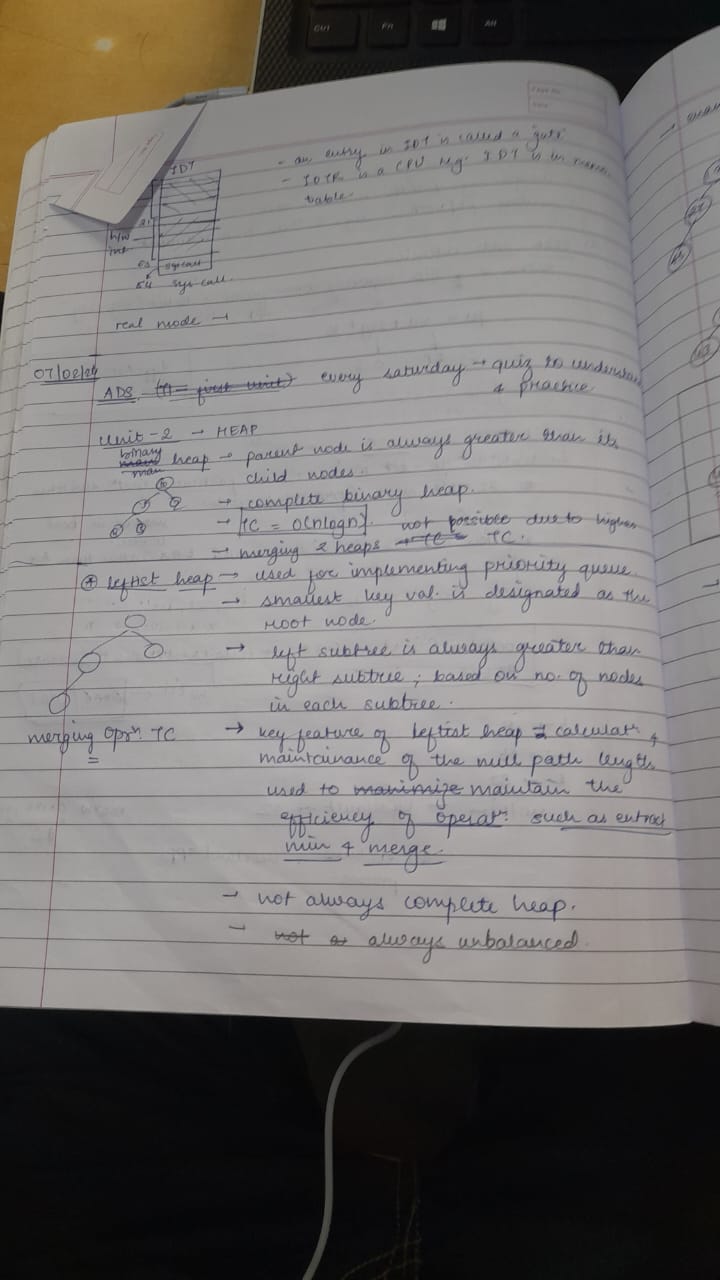 IDT
- an entry in IDT is called a 'gate'
- IDTR is a CPU reg. IDT is in
table.
h/w
int
syscall
sys call.
real mode →
07/02/24
ADS (T1 = first unit) every saturday → quiz to understand
& practice
Unit - 2 → HEAP
binary
max heap → parent node is always greater than its
child nodes.
→ complete binary heap.
→ TC = O(nlogn). not possible due to higher
→ merging 2 heaps → TC = TC.
* leftist heap → used for implementing priority queue
→ smallest key val. is designated as the
root node.
→ left subtree is always greater than
right subtree ; based on no. of nodes
in each subtree.
merging oprn. TC → key feature of leftist heap calculatn &
maintainance of the null path length
used to manimize maintain the
efficiency of operatn. such as extract
min & merge.
→ not always complete heap.
→ not a always unbalanced.